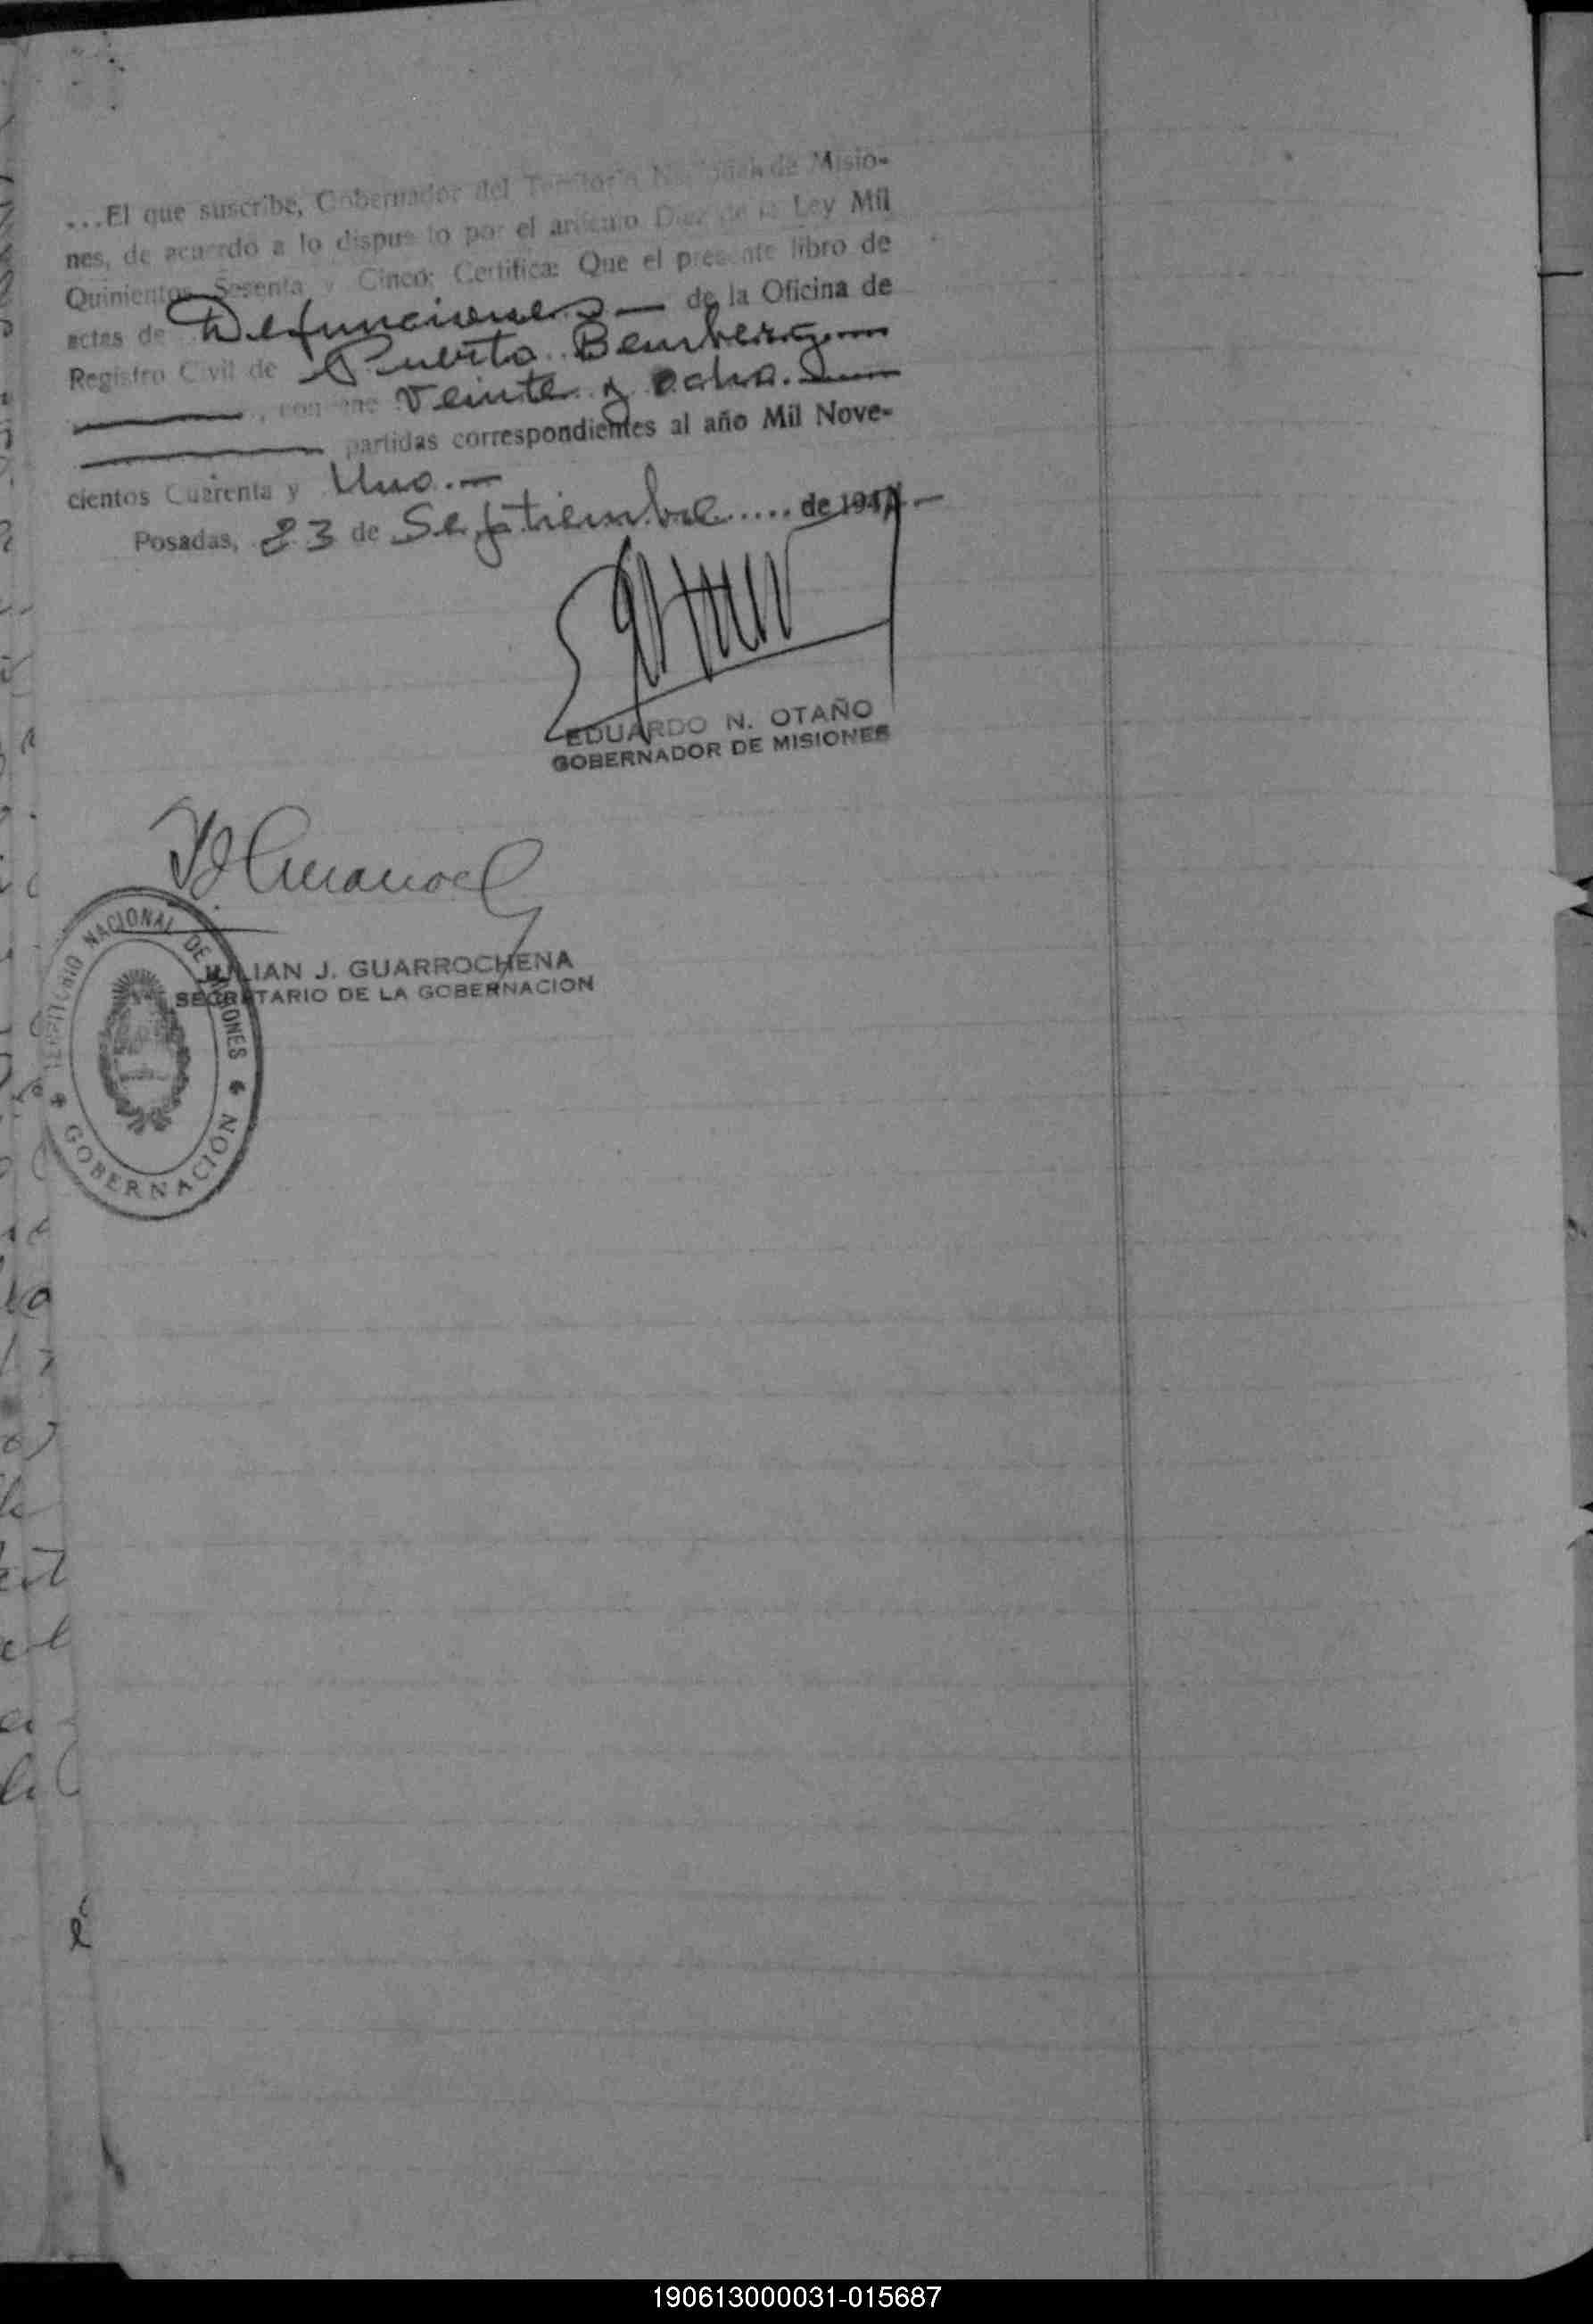 ...El que suscribe, Gobernador del Territorio Nacional de Misio-
nes, de acuerdo a lo dispuesto por el artículo Diez de la Ley Mil
Quinientos Sesenta y Cinco; Certifica: Que el presente libro de
actas de Defunciones — de la Oficina de
Registro Civil de Puerto Bemberg.—
, contiene Veinte y ocho.—
partidas correspondientes al año Mil Nove-
cientos Cuarenta y Uno.—
Posadas, 23 de Septiembre ..... de 194
EDUARDO N. OTAÑO
GOBERNADOR DE MISIONES
JULIAN J. GUARROCHENA
SECRETARIO DE LA GOBERNACION
TERRITORIO NACIONAL DE MISIONES
GOBERNACIÓN
190613000031-015687